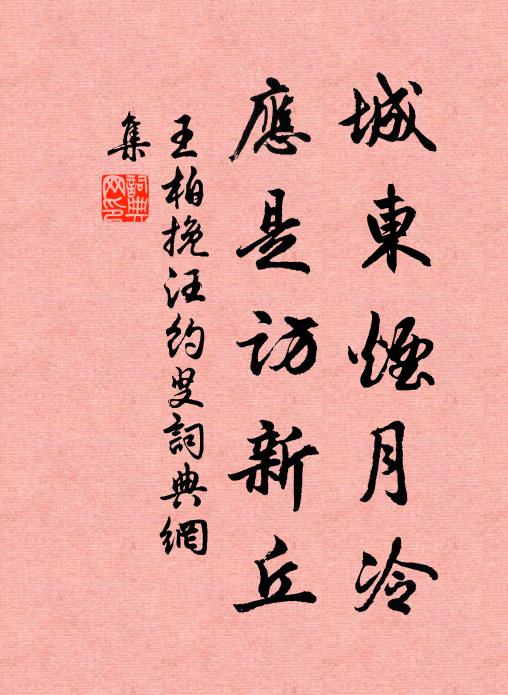 城東煙月冷
應是訪新丘
王柏挽汪約叟詞典網
集
詞典
网印